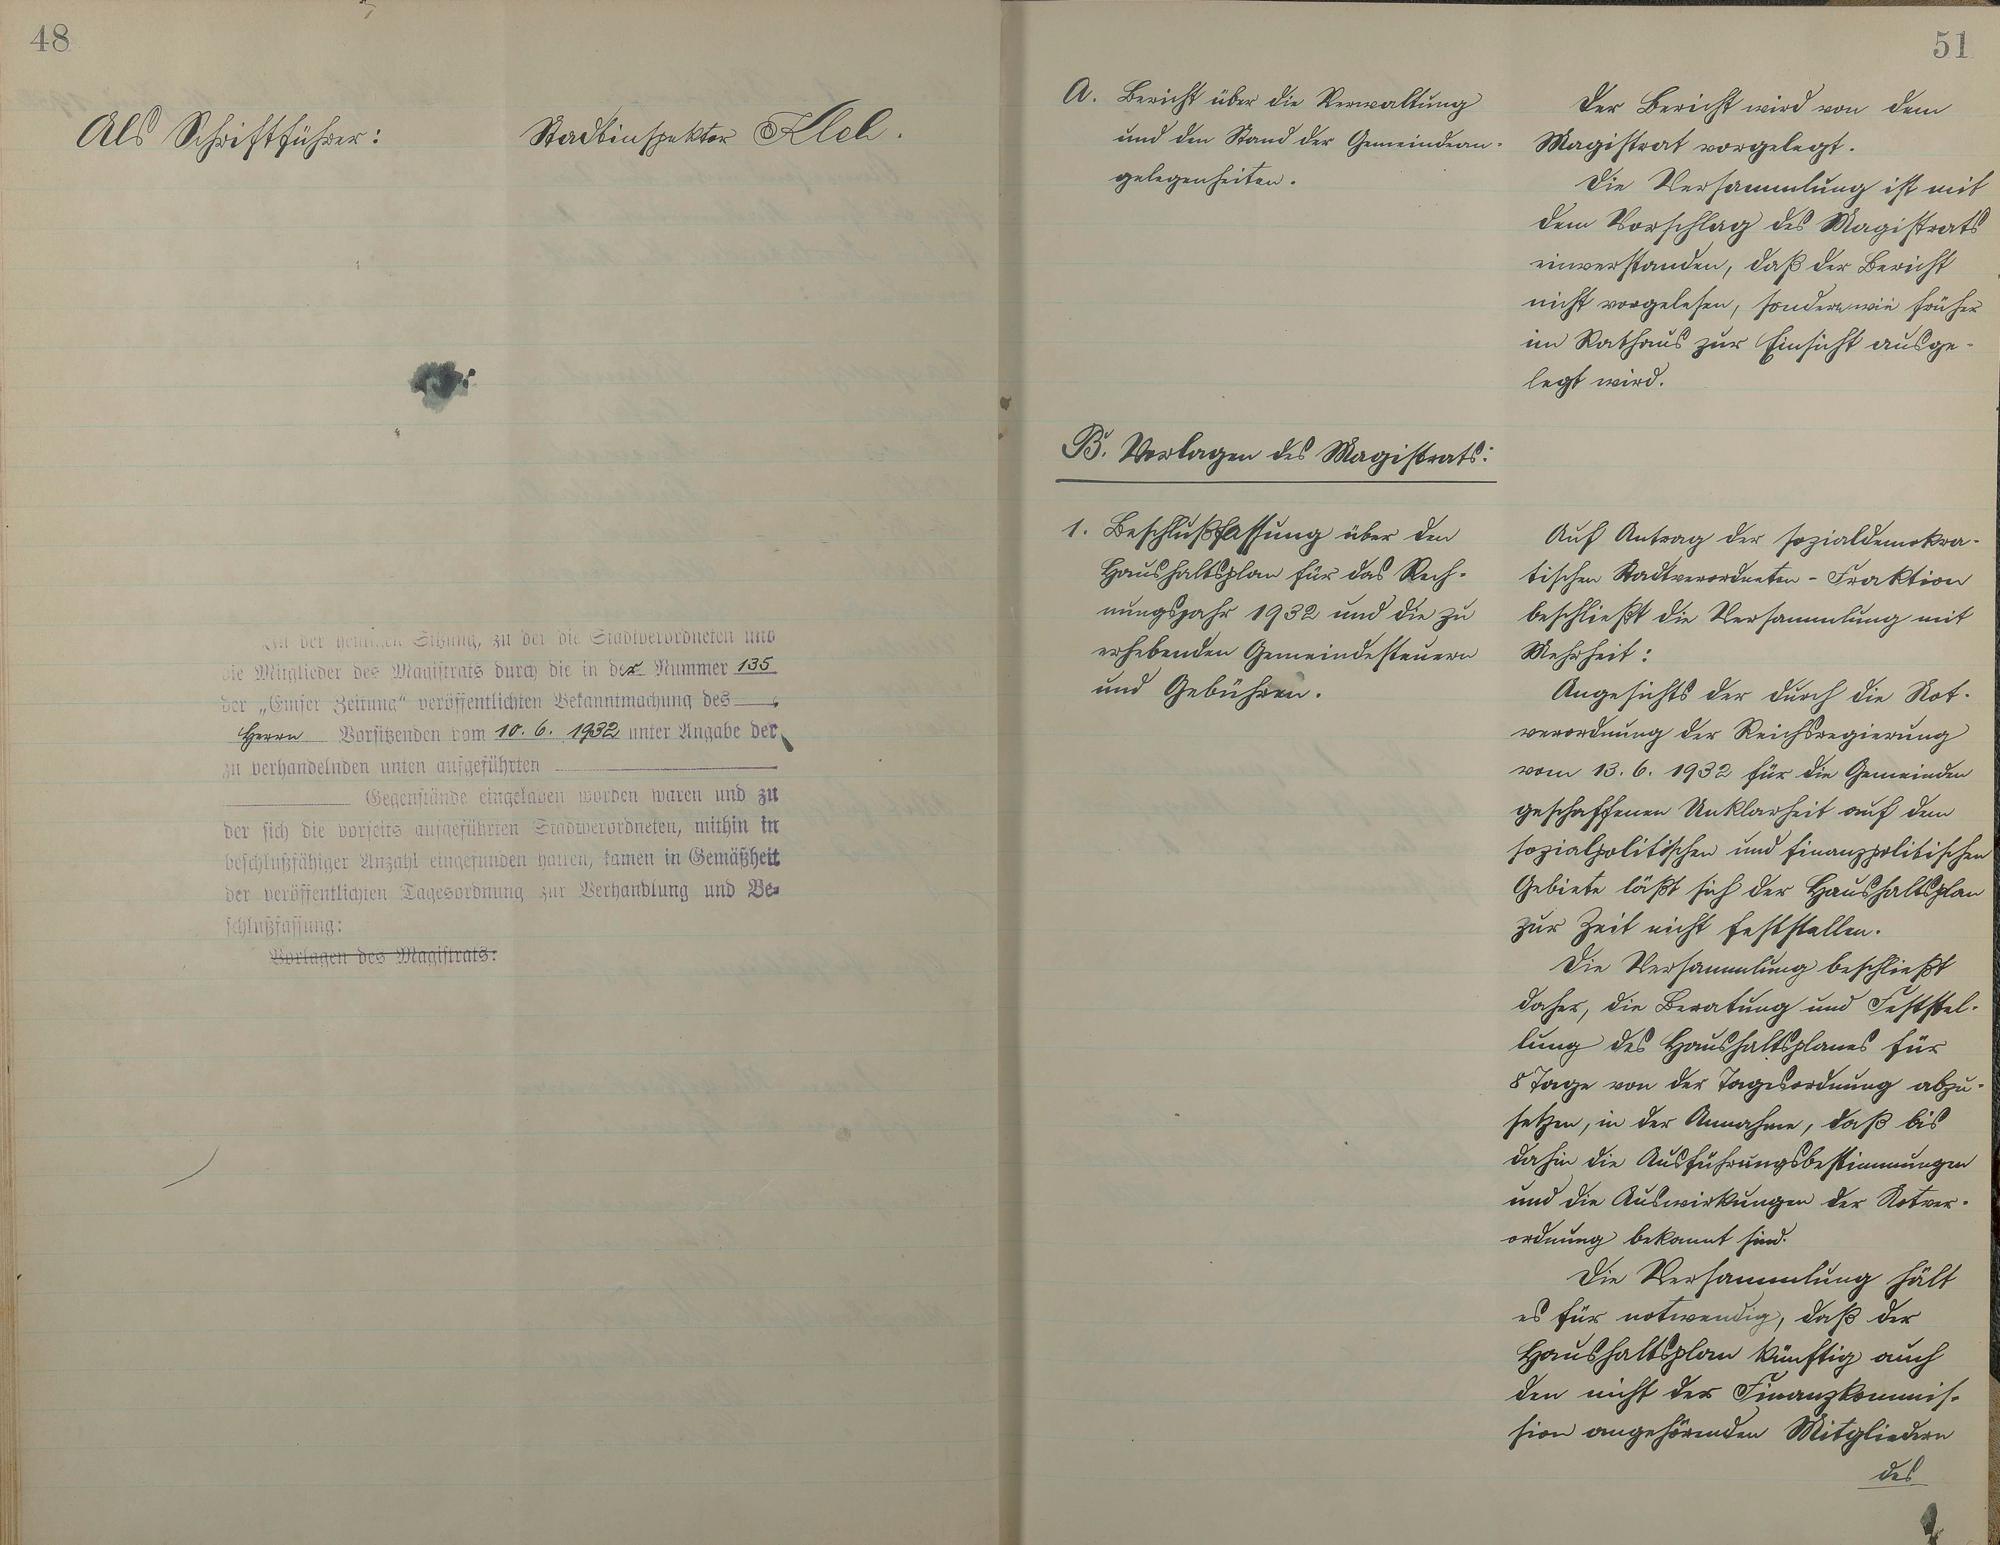 48
Als Schriftführer: Stadtinspektor
In der heutigen Sitzung, zu der die Stadtverordneten und
die Mitglieder des Magistrats durch die in der Nummer 135
der „Emser Zeitung“ veröffentlichten Bekanntmachung des
Herrn Vorsitzenden vom 10. 6. 1932 unter Angabe der
zu verhandelnden unten aufgeführten
Gegenstände eingeladen worden waren und zu
der sich die vorseits aufgeführten Stadtverordneten, mithin in
beschlußfähiger Anzahl eingefunden hatten, kamen in Gemäßheit
der veröffentlichten Tagesordnung zur Verhandlung und Be-
schlußfassung:
Vorlagen des Magistrats:
51
A. Bericht über die Verwaltung
und den Stand der Gemeindean-
gelegenheiten.
Der Bericht wird von dem
Magistrat vorgelegt.
Die Versammlung ist mit
dem Vorschlag des Magistrats
einverstanden, daß der Bericht
nicht vorgelesen, sondern wie früher
im Rathaus zur Einsicht ausge-
legt wird.
B. Vorlagen des Magistrats:
1. Beschlußfassung über den
Haushaltsplan für das Rech-
nungsjahr 1932 und die zu
erhebenden Gemeindesteuern
und Gebühren.
Auf Antrag der sozialdemokra-
tischen Stadtverordneten-Fraktion
beschließt die Versammlung mit
Mehrheit:
Angesichts der durch die Not-
verordnung der Reichsregierung
vom 13. 6. 1932 für die Gemeinden
geschaffenen Unklarheit auf dem
sozialpolitischen und finanzpolitischen
Gebiete läßt sich der Haushaltsplan
zur Zeit nicht feststellen.
Die Versammlung beschließt
daher, die Beratung und Feststel-
lung des Haushaltsplanes für
8 Tage von der Tagesordnung abzu-
setzen, in der Annahme, daß bis
dahin die Ausführungsbestimmungen
und die Auswirkungen der Notver-
ordnung bekannt sind.
Die Versammlung hält
es für notwendig, daß der
Haushaltsplan künftig auch
den nicht der Finanzkommis-
sion angehörenden Mitgliedern
des